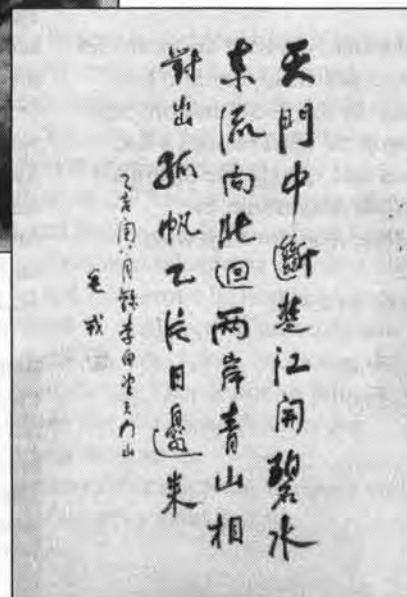 天門中斷楚江開碧水
東流向此迴两岸青山相
對出孤帆乙片日邊来
乙亥閏八月録李白望天门山
毛